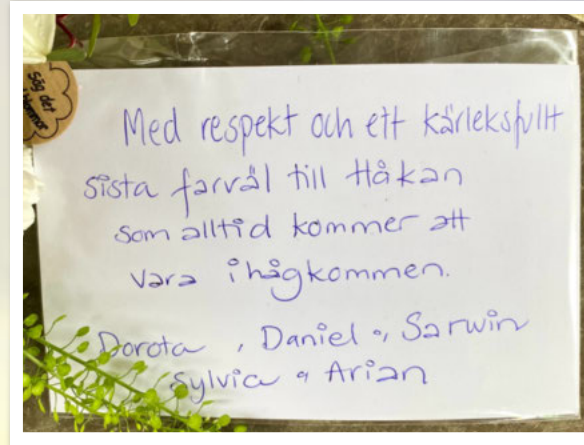 Säg det
blommor
Med respekt och ett kärleksfullt
sista farväl till Håkan
som alltid kommer att
vara ihågkommen.
Dorota, Daniel o, Sarwin
Sylvia o Arian